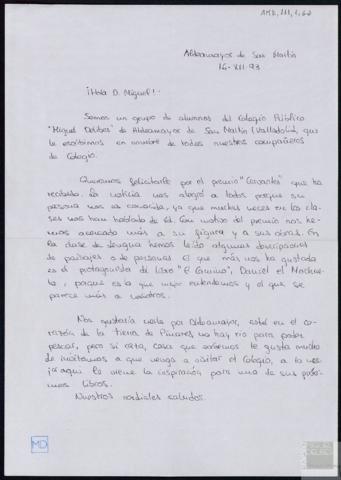 AMD, 111, 1, 62
Aldeamayor de San Martín
16-XII-93
¡Hola D. Miguel!:
Somos un grupo de alumnos del Colegio Público
"Miguel Delibes" de Aldeamayor de San Martín (Valladolid), que
le escribimos en nombre de todos nuestros compañeros
de Colegio.
Queremos felicitarle por el premio "Cervantes" que ha
recibido. La noticia nos alegró a todos porque su
persona nos es conocida, ya que muchas veces en las cla-
ses nos han hablado de Vd. Con motivo del premio nos he-
mos acercado más a su figura y a sus obras. En
la clase de Lengua hemos leído algunas descripciones
de paisajes o de personas. El que más nos ha gustado
es el protagonista del libro "El Camino", Daniel el Mochue-
lo, porque es lo que mejor entendemos y el que se
parece más a nosotros.
Nos gustaría verle por Aldeamayor, está en el co-
razón de la Tierra de Pinares, no hay río para poder
pescar, pero sí caza, cosa que sabemos le gusta mucho
le invitamos a que venga a visitar el Colegio, a lo me-
jor aquí le viene la inspiración para uno de sus próxi-
mos libros.
Nuestros cordiales saludos.
MD